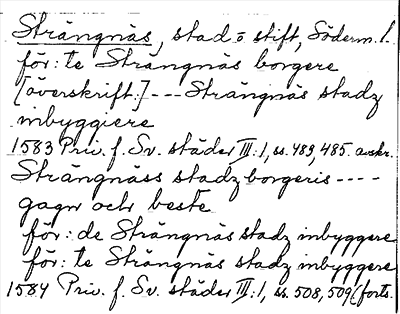 Strängnäs, stad o. stift, Söderm. l.
för: te Strängnäs borgere
[överskrift.] --- Strängnäs stadz
inbyggiere
1583 Priv. f. Sv. städer III:1, ss. 483, 485. avskr.
Strängnäss stadz borgeris ----
gagn och beste
för: de Strängnäs stadz inbyggere
för: te Strängnäs stadz inbyggere
1584 Priv. f. Sv. städer III:1, ss. 508, 509 (forts.